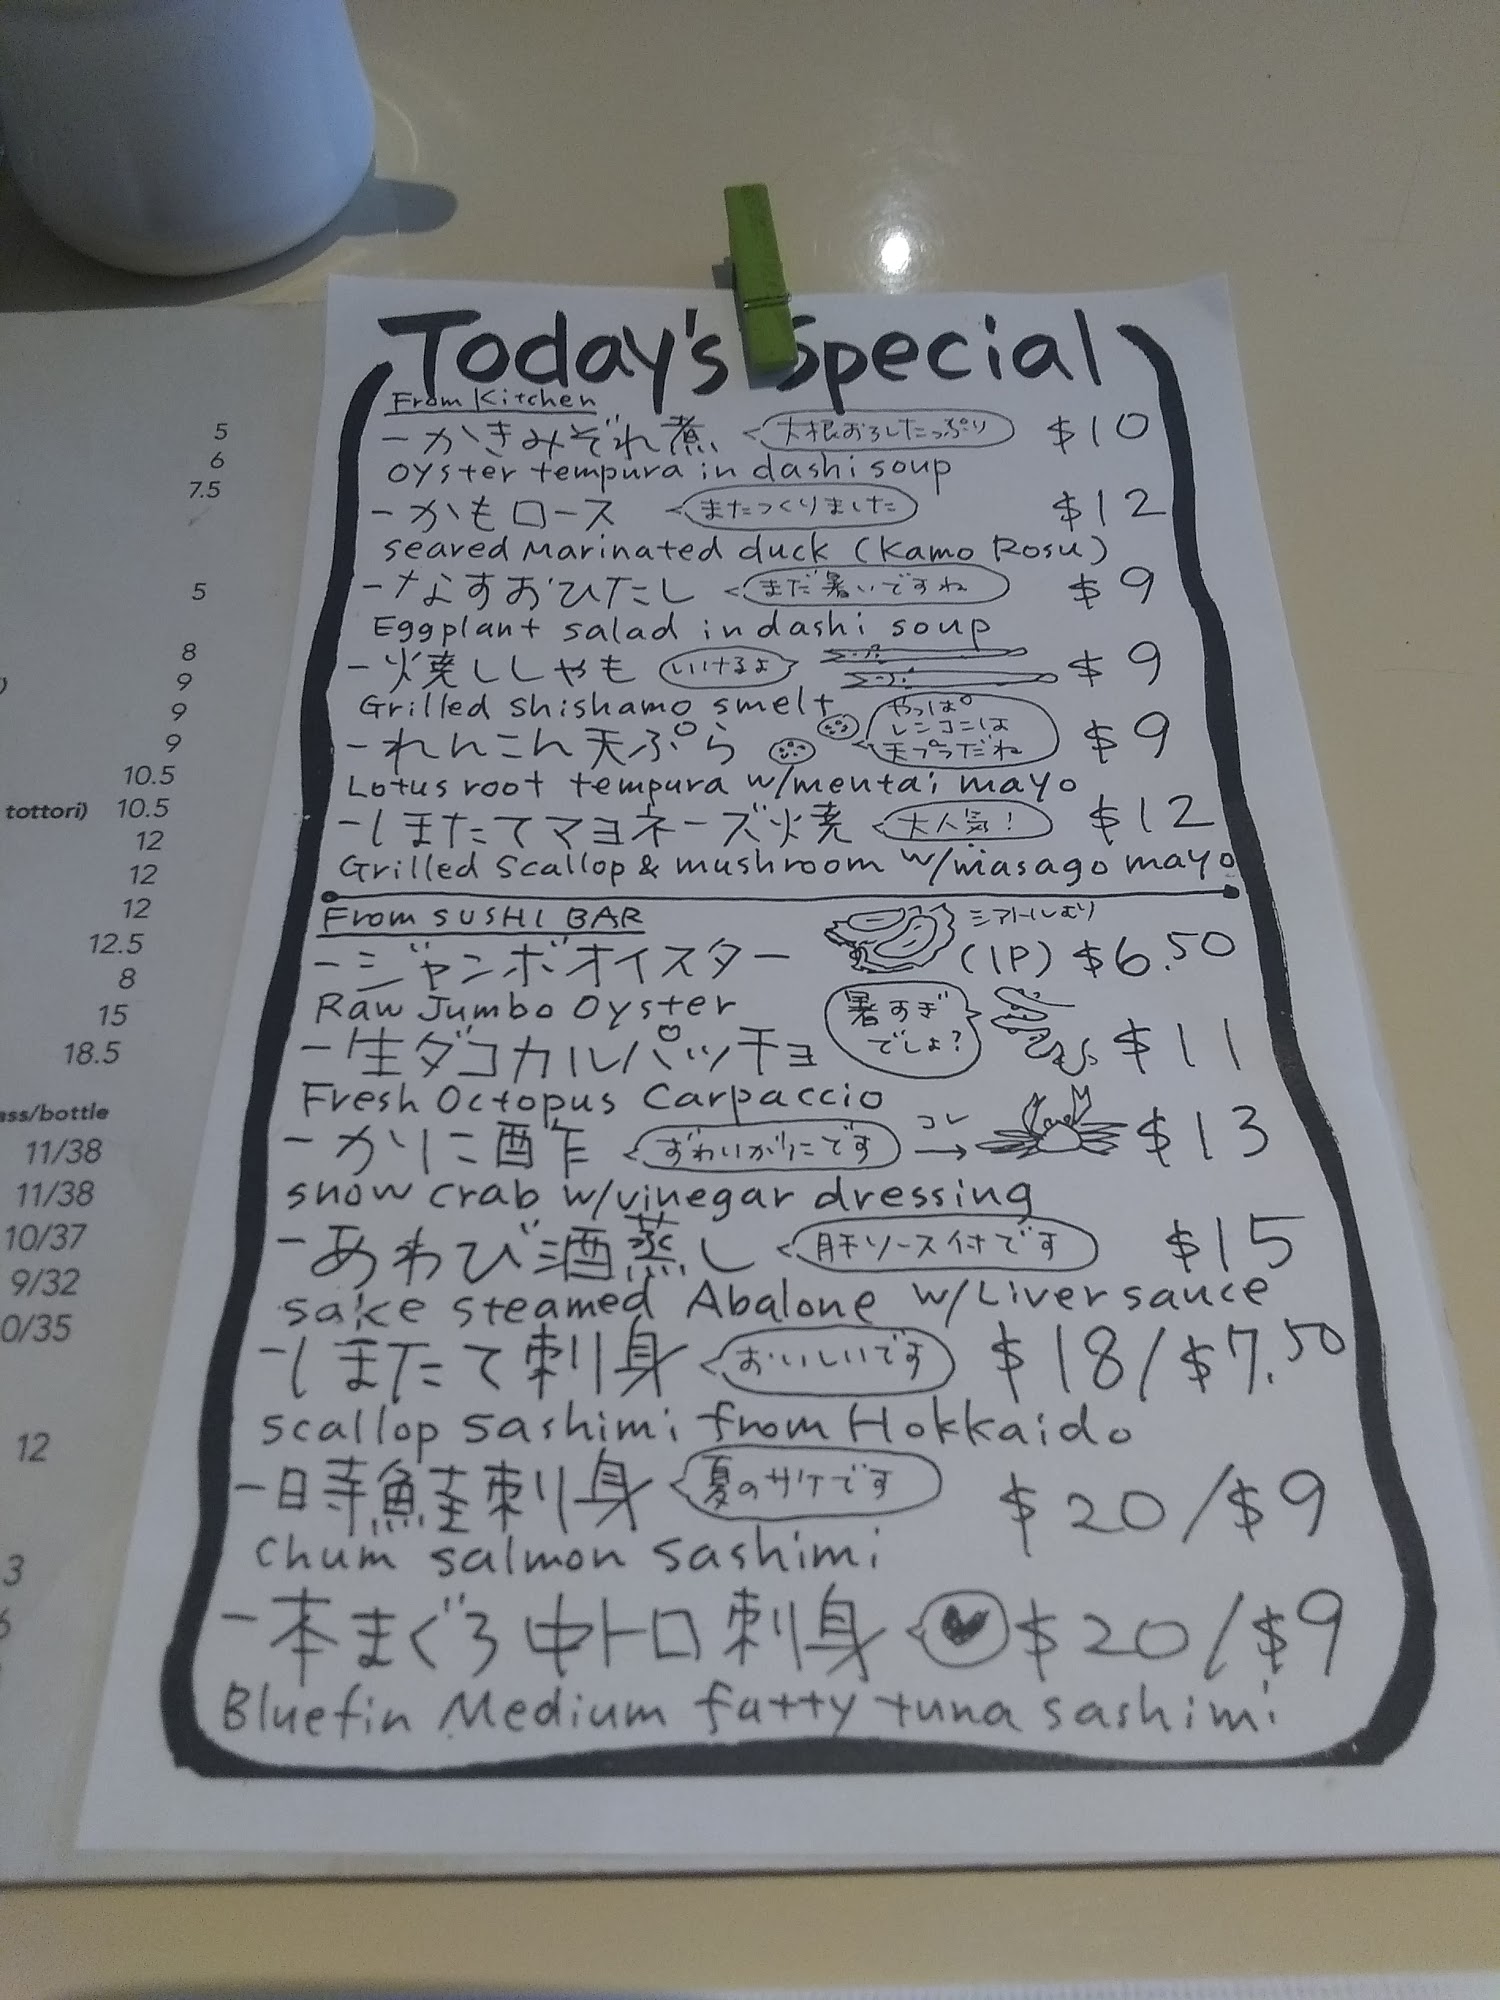 Today's Special
From Kitchen
- かきみぞれ煮 大根おろしたっぷり $10
oyster tempura in dashi soup
- かもロース またつくりました $12
seared Marinated duck (Kamo Rosu)
- なすおひたし まだ暑いですね $9
Eggplant salad in dashi soup
- 焼ししゃも いけるよ $9
Grilled shishamo smelt
- れんこん天ぷら やっぱ $9
レンコンは
天プラだね
Lotus root tempura w/mentai mayo
- ほたてマヨネーズ焼 大人気! $12
Grilled scallop & mushroom w/masago mayo
From SUSHI BAR
- ジャンボオイスター (1P) $6.50
Raw Jumbo Oyster
- 生ダコカルパッチョ 暑すぎ $11
でしょ?
Fresh Octopus Carpaccio
- かに酢 ずわいがにです コレ → $13
snow crab w/vinegar dressing
- あわび酒蒸し 肝ソース付です $15
sake steamed Abalone w/Liver sauce
- ほたて刺身 おいしいです $18/$7.50
scallop sashimi from Hokkaido
- 時鮭刺身 夏のサケです $20/$9
chum salmon sashimi
- 本まぐろ中トロ刺身 $20/$9
Bluefin Medium fatty tuna sashimi
5
6
7.5
5
8
9
9
9
10.5
tottori) 10.5
12
12
12
12.5
8
15
18.5
ass/bottle
11/38
11/38
10/37
9/32
0/35
12
3